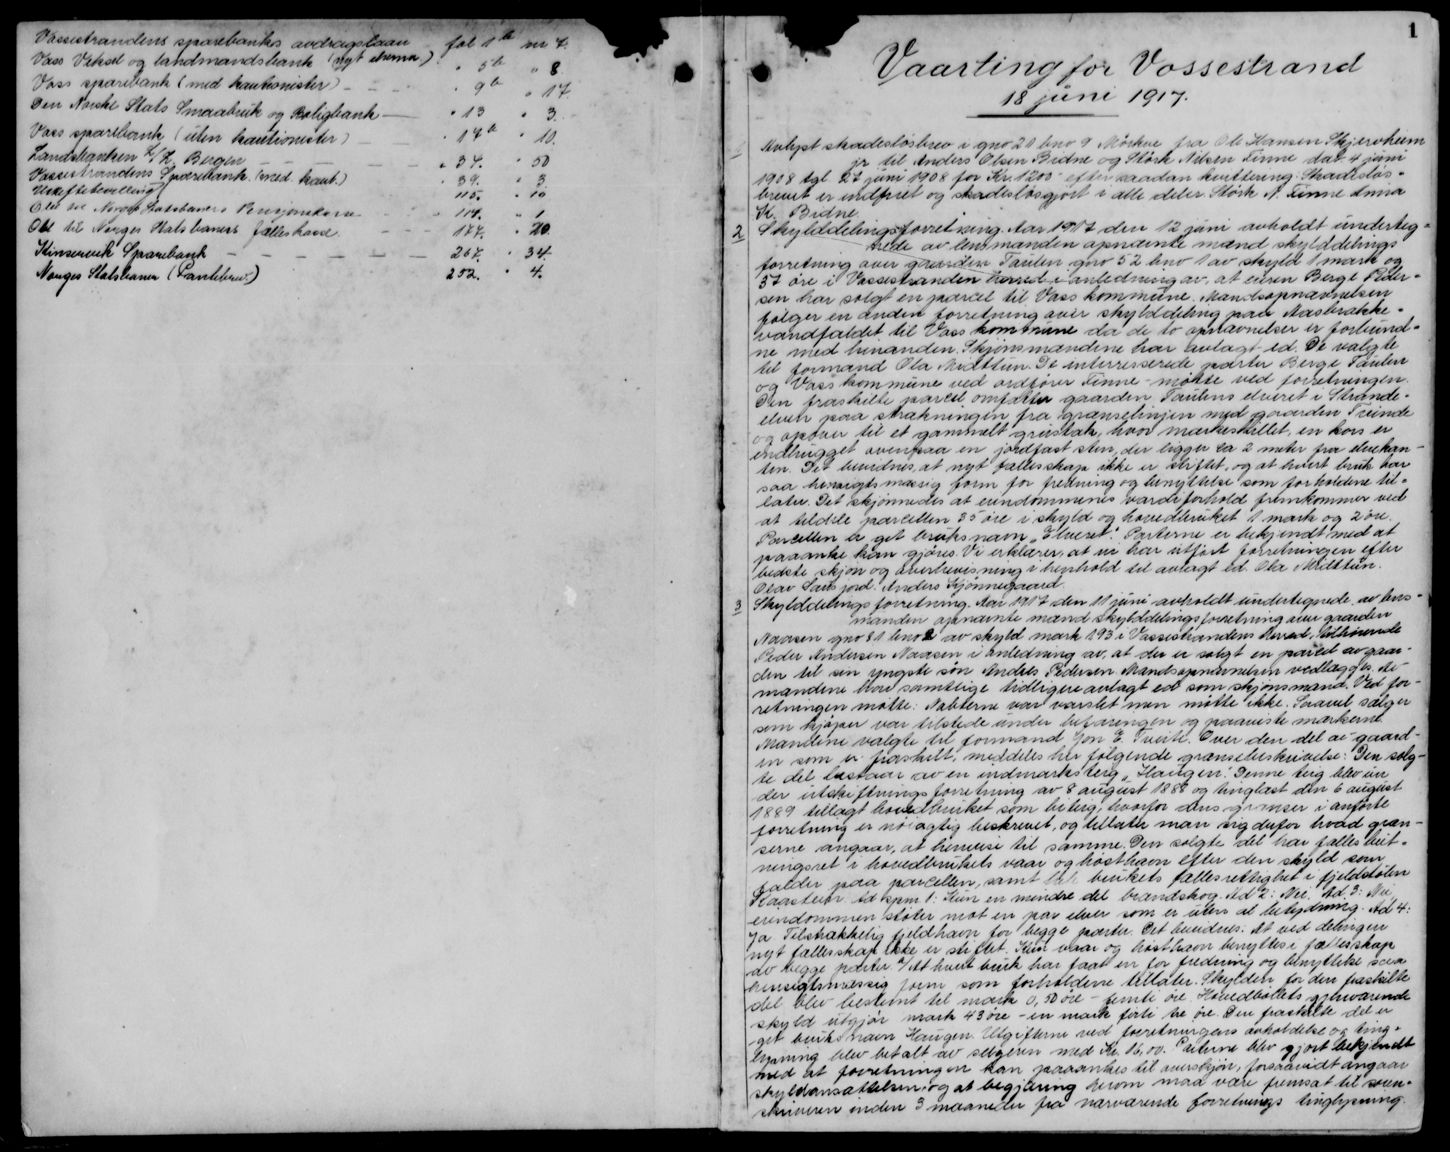 Vossestrandens sparebanks avdragslaan fol 1 b nr 7.
Voss Veksel og landmandsbank (nyt skema) " 5 b " 8
Voss sparebank (med kautionister) - - - " 9 b " 17
Den Norske Stats Smaabruk og Boligbank — " 13 " 3.
Voss sparebank (uten kautionister) " 17 b " 10.
Landsbanken A/L Bergen - - - - " 34. " 50
Vossestrandens Sparebank (med kaut.) " 39. " 3
Utskiftebevilling 115. " 10
Obl til Norges Statsbaners Pensjonskasse " 117. " 1
Obl til Norges Statsbaners fælleskasse - - - 177. " 20.
Kinservik Sparebank - - - - - 267. " 34
Norges Statsbaner (Pantebrev.) 252. " 4.
1
Vaarting for Vossestrand
18 juni 1917.
Avlyst skadesløsbrev i gno 20 bno 9 Mörkve fra Ole Hansen Skjervheim
jr til Anders Olsen Bidne og Störk Nilsen Finne dat 4 juni
1908 tgl 27 juni 1908 for Kr. 1200 - efter saadan kvittering: Skadesløs-
brevet er indfriet og skadesløsgjort i alle deler Störk N. Finne Anna
K. Bidne.
2 Skylddelingsforretning. Aar 1917 den 12 juni avholdt underteg-
nede av lensmanden opnævnte mænd skylddelings
forretning over gaarden Taulen gno 52 bno 1 av skyld 1 mark og
37 öre i Vossestranden herred i anledning av, at eieren Berge Peder-
sen har solgt en parcel til Voss kommune. Mandsopnævnelsen
følger en anden forretning over skylddeling paa Aasbrække-
vandfaldet til Voss kommune da de to opnævnelser er forbund-
ne med hinanden. Skjönsmændene har avlagt ed. De valgte
til formand Ola Midttun. De interesserede parter Berge Taulen
og Voss kommune ved ordförer Finne - mötte ved forretningen.
Den fraskilte parcel omfatter gaarden Taulens elveret i Strande-
elven paa strækningen fra grænselinjen med gaarden Tvinde
og opover til et gammelt grustak, hvor merkeskillet, en kors er
indhugget ovenpaa en jordfast sten, der ligger ca 2 meter fra elvekan-
ten. Det bevidnes, at nyt fællesskap ikke er stiftet, og at hvert bruk har
saa hensigtsmæssig form for fredning og benyttelse som forholdene til-
later. Det skjönnedes at eiendommenes værdiforhold fremkommer ved
at tildele parcellen 35 öre i skyld og hovedbruket 1 mark og 2 öre.
Parcellen er get bruksnavn "Elveret". Parterne er bekjendt med at
paaanke kan gjöres. Vi erklærer, at vi har utfört forretningen efter
bedste skjön og overbevisning i henhold til avlagt ed. Ola Midttun.
Olav Sausjord. Anders Gjönnegaard.
3 Skylddelingsforretning. Aar 1917 den 11 juni avholdt undertegnede av lens-
manden opnævnte mænd skylddelingsforretning over gaarden
Naasen gno 81 bno 2 av skyld mark 193 i Vossestrandens herred, tilhörende
Peder Andersen Naasen i anledning av, at der er solgt en parcel av gaar-
den til sin yngste sön Anders Pedersen. Mandsopnævnelsen vedlægges. Av
mændene have samtlige tidligere avlagt ed som skjönsmænd. Ved for-
retningen mötte: Naboerne var varslet men mötte ikke. Saavel sælger
som kjöper var tilstede under befaringen og paaviste merkerne
Mændene valgte til formand Jon E. Tveite. Over den del av gaard-
en som er fraskilt, meddeles her fölgende grænsebeskrivelse: Den solg-
te del bestaar av en indmarksteig "Haugen". Denne teig blev un
der utskiftningsforretning av 8 august 1888 og tinglæst den 6 august
1889 tillagt hovedbruket som böteig, hvorfor dens grænser i anförte
forretning er nöiagtig beskrevet, og tillater man sig derfor hvad græn-
serne angaar, at henvise til samme. Den solgte del har fælles beit-
ningsret i hovedbrukets vaar og hösthavn efter den skyld som
falder paa parcellen, samt i brukets fællesrettighet i fjeldstölen
Kaasteien. Ad spm 1: Kun en mindre del brændskog. Ad 2: Nei. Ad 3: Nei
eiendommen stöter mot en par elver som er uten al betydning. Ad 4:
Ja Tilstrækkelig fjeldhavn for begge parter. Det bevidnes: At ved delingen
nyt fællesskap ikke er stiftet. Kun vaar og hösthavn benyttes i fællesskap
av begge parter. 2/ At hvert bruk har faat en for fredning og benyttelse saa
hensigtsmæssig form som forholdene tillater. Skylden for den fraskilte
del blev bestemt til mark 0,50 öre - femti öre. Hovedbölets gjenværende
skyld utgjör mark 43 öre - en mark forti tre öre. Den fraskilte del er
get bruksnavn Haugen. Utgifterne ved forretningens avholdelse og ting-
lysning blev betalt av sælgeren med Kr. 16,00. Parterne blev gjort bekjendt
med at forretningen kan paaankes til overskjön, forsaavidt angaar
skyldansættelsen, og at begjæring herom maa være fremsat til soren-
skriveren inden 3 maaneder fra nærværende forretnings tinglysning.